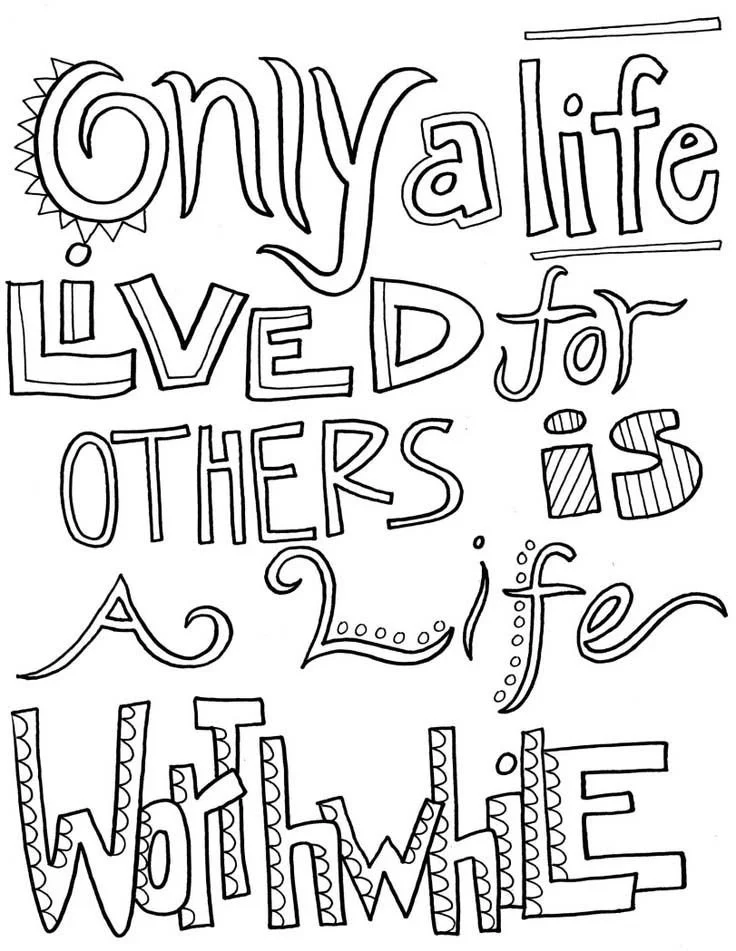 Only a life
LiVED for
OTHERS is
A Life
WorThwhiLE